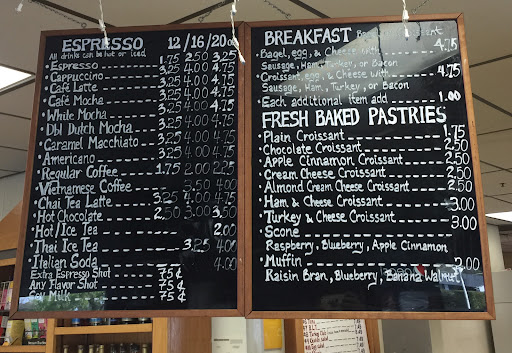 ESPRESSO 12/16/20oz
All drinks can be hot or iced
Espresso 1.75 2.50 3.25
Cappuccino 3.25 4.00 4.75
Café Latte 3.25 4.00 4.75
Café Mocha 3.25 4.00 4.75
White Mocha
Dbl Dutch Mocha
Caramel Macchiato
Americano
Regular Coffee 1.75 2.00 2.25
Vietnamese Coffee 3.50 4.00
Chai Tea Latte 3.25 4.00 4.75
Hot Chocolate 2.50 3.00 3.50
Hot/Ice Tea
Thai Ice Tea 3.25 4.00
Italian Soda 4.00
Extra Espresso Shot 75¢
Any Flavor Shot 75¢
Soy Milk 75¢
BREAKFAST
Bagel, egg, & Cheese with 4.75
Sausage, Ham, Turkey, or Bacon
Croissant, egg, & Cheese with 4.75
Sausage, Ham, Turkey, or Bacon
Each additional item add 1.00
FRESH BAKED PASTRIES
Plain Croissant 1.75
Chocolate Croissant 2.50
Apple Cinnamon Croissant 2.50
Cream Cheese Croissant 2.50
Almond Cream Cheese Croissant 2.50
Ham & Cheese Croissant 3.00
Turkey & Cheese Croissant 3.00
Scone
Raspberry, Blueberry, Apple Cinnamon
Muffin 2.00
Raisin Bran, Blueberry, Banana Walnut